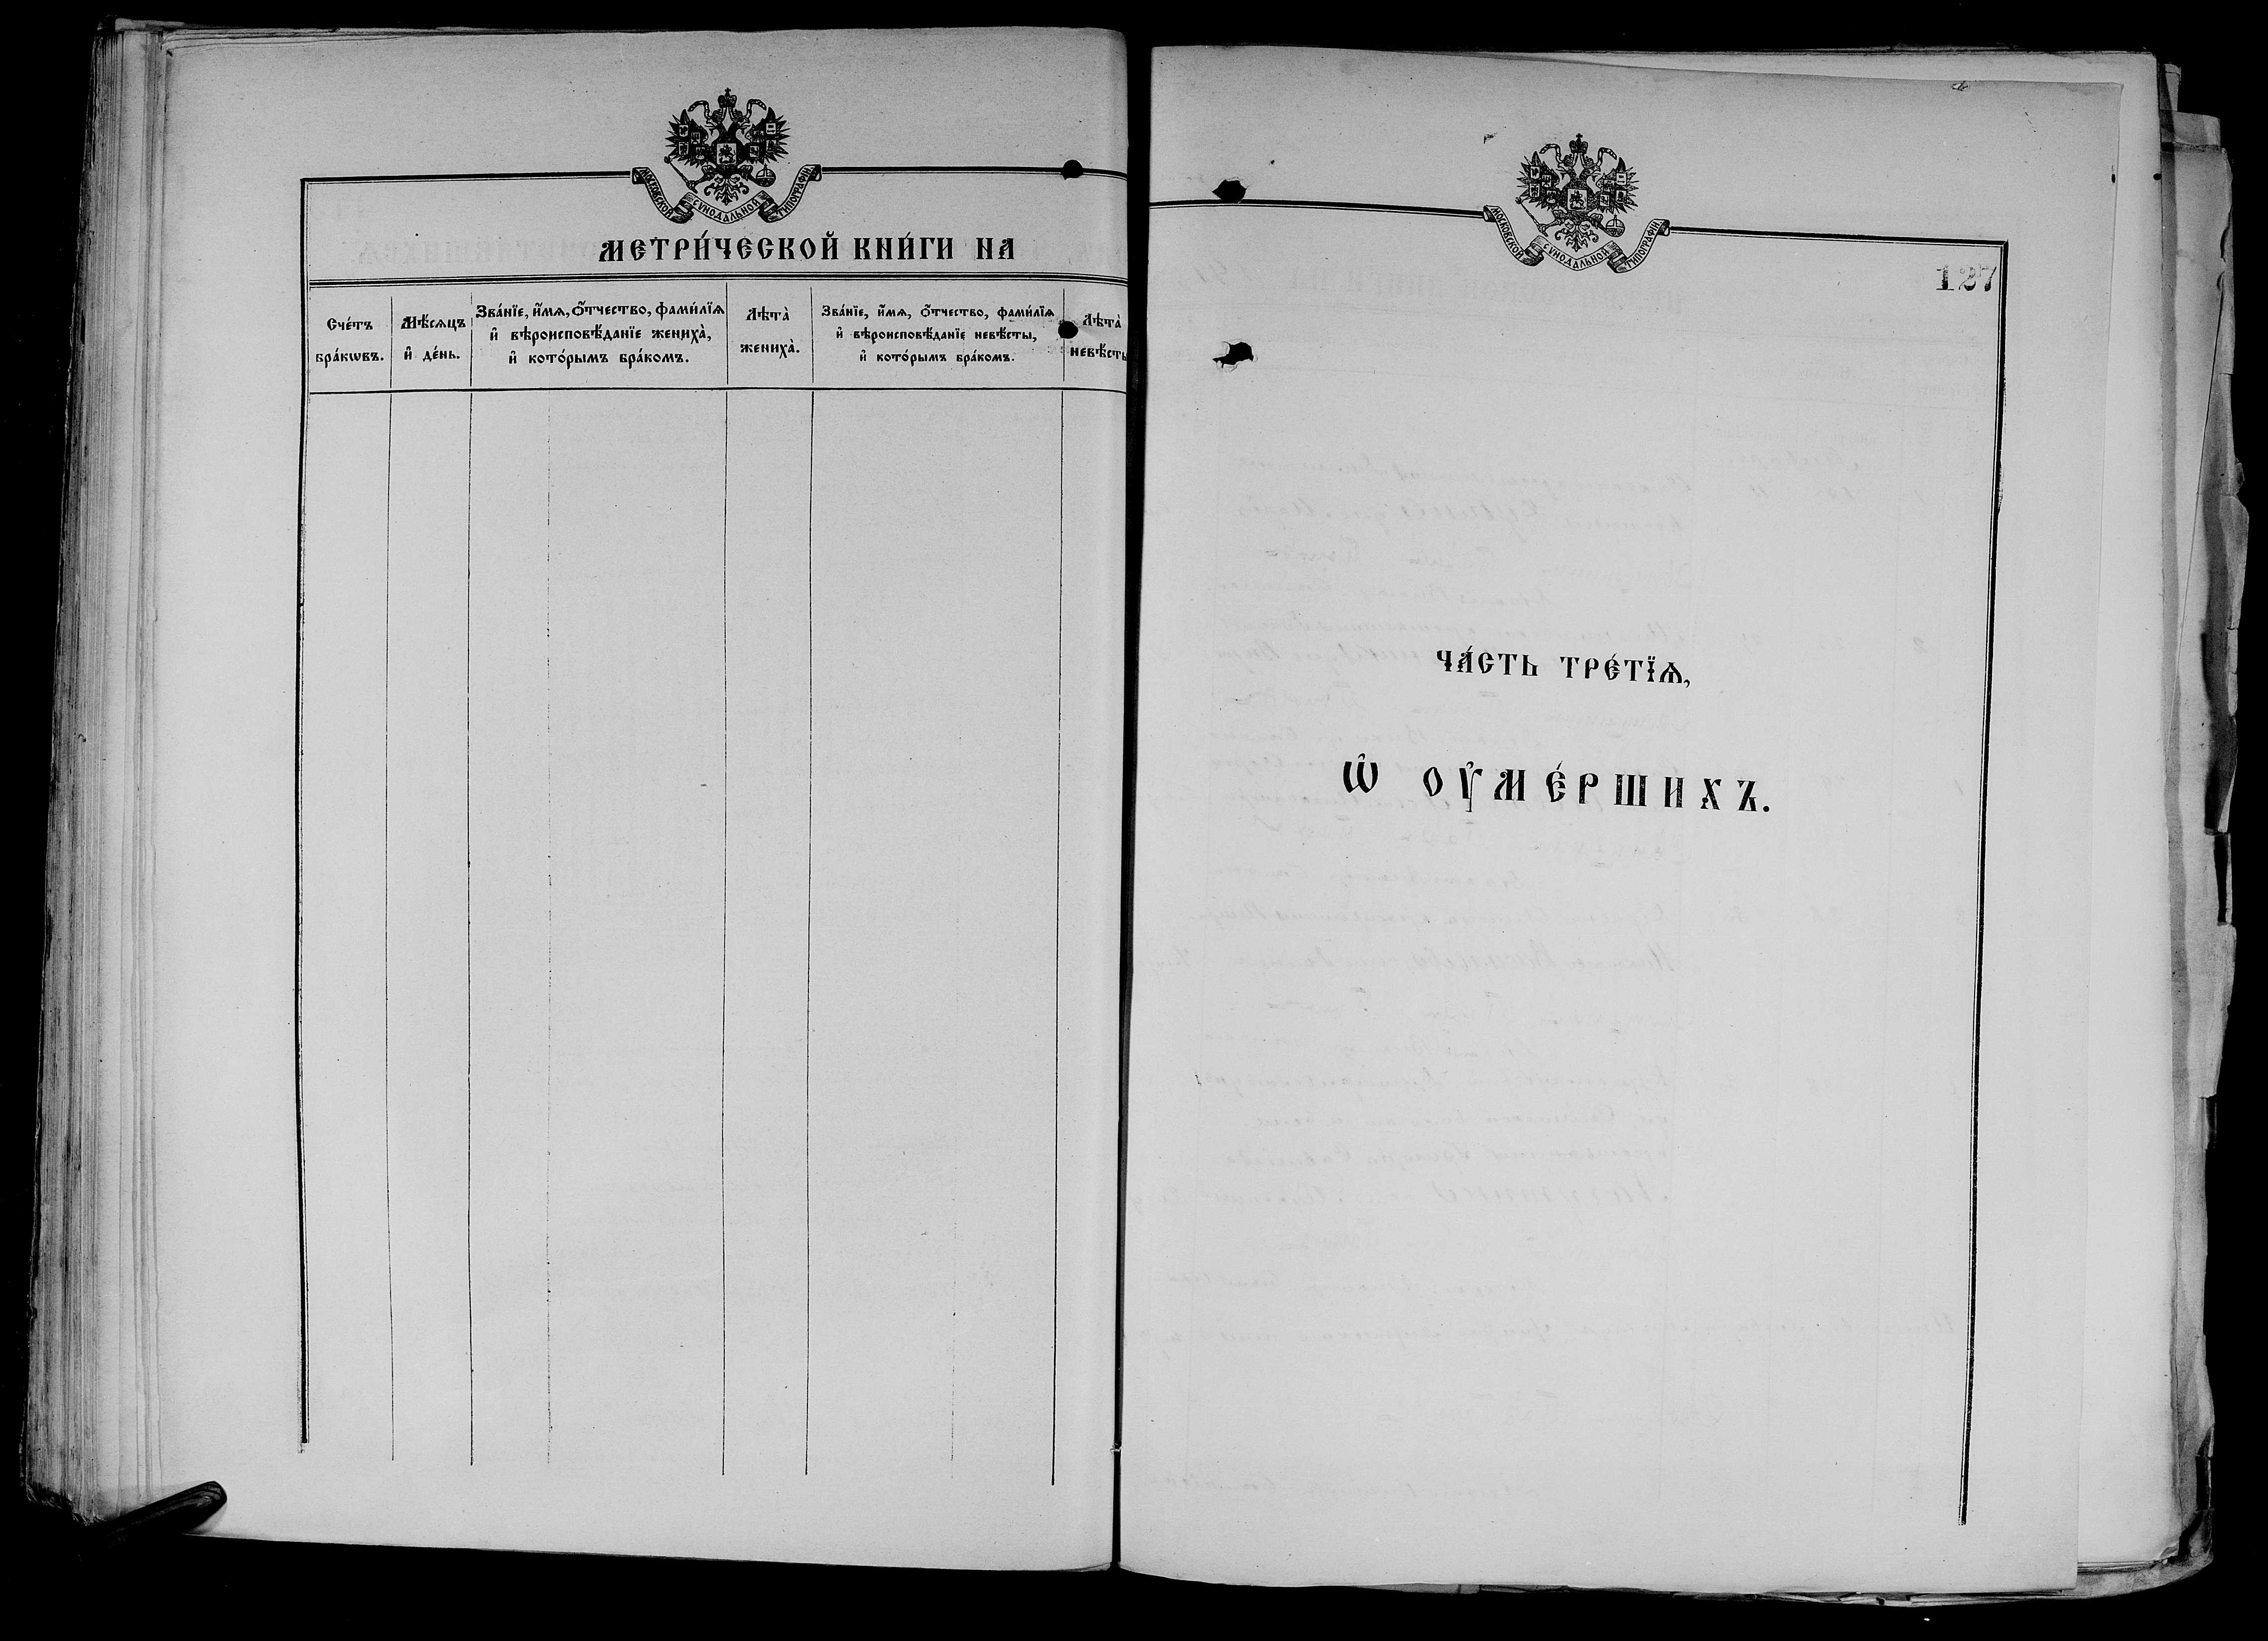 МОСКОВСКОЙ СѴНОДАЛЬНОЙ ТИПОГРАФІИ
МЕТРИ́ЧЕСКОЙ КНИ́ГИ НА
Сче́тъ
бра́кѡвъ.
Мѣ́сѧцъ
и҆ де́нь.
Зва́нїе, и҆́мѧ, ѻ҆́тчество, фами́лїѧ
и҆ вѣроисповѣ́данїе жениха̀,
и҆ кото́рымъ бра́комъ.
Лѣта̀
жениха̀.
Зва́нїе, и҆́мѧ, ѻ҆́тчество, фами́лїѧ
и҆ вѣроисповѣ́данїе невѣ́сты,
и҆ кото́рымъ бра́комъ.
Лѣта̀
невѣ́сты
МОСКОВСКОЙ СѴНОДАЛЬНОЙ ТИПОГРАФІИ
127
ЧА́СТЬ ТРЕ́ТЇѦ,
Ѡ҆ ОУ҆МЕ́РШИХЪ.